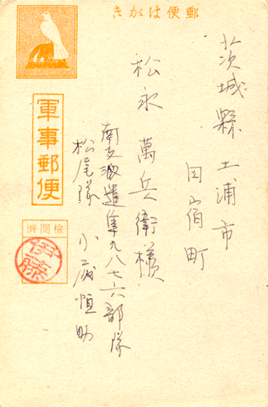 きがは便郵
軍事郵便
檢閲濟
伊藤
茨城縣土浦市
田宿町
松永萬兵衛様
南支派遣隼九八七六部隊
松尾隊 小 恒助